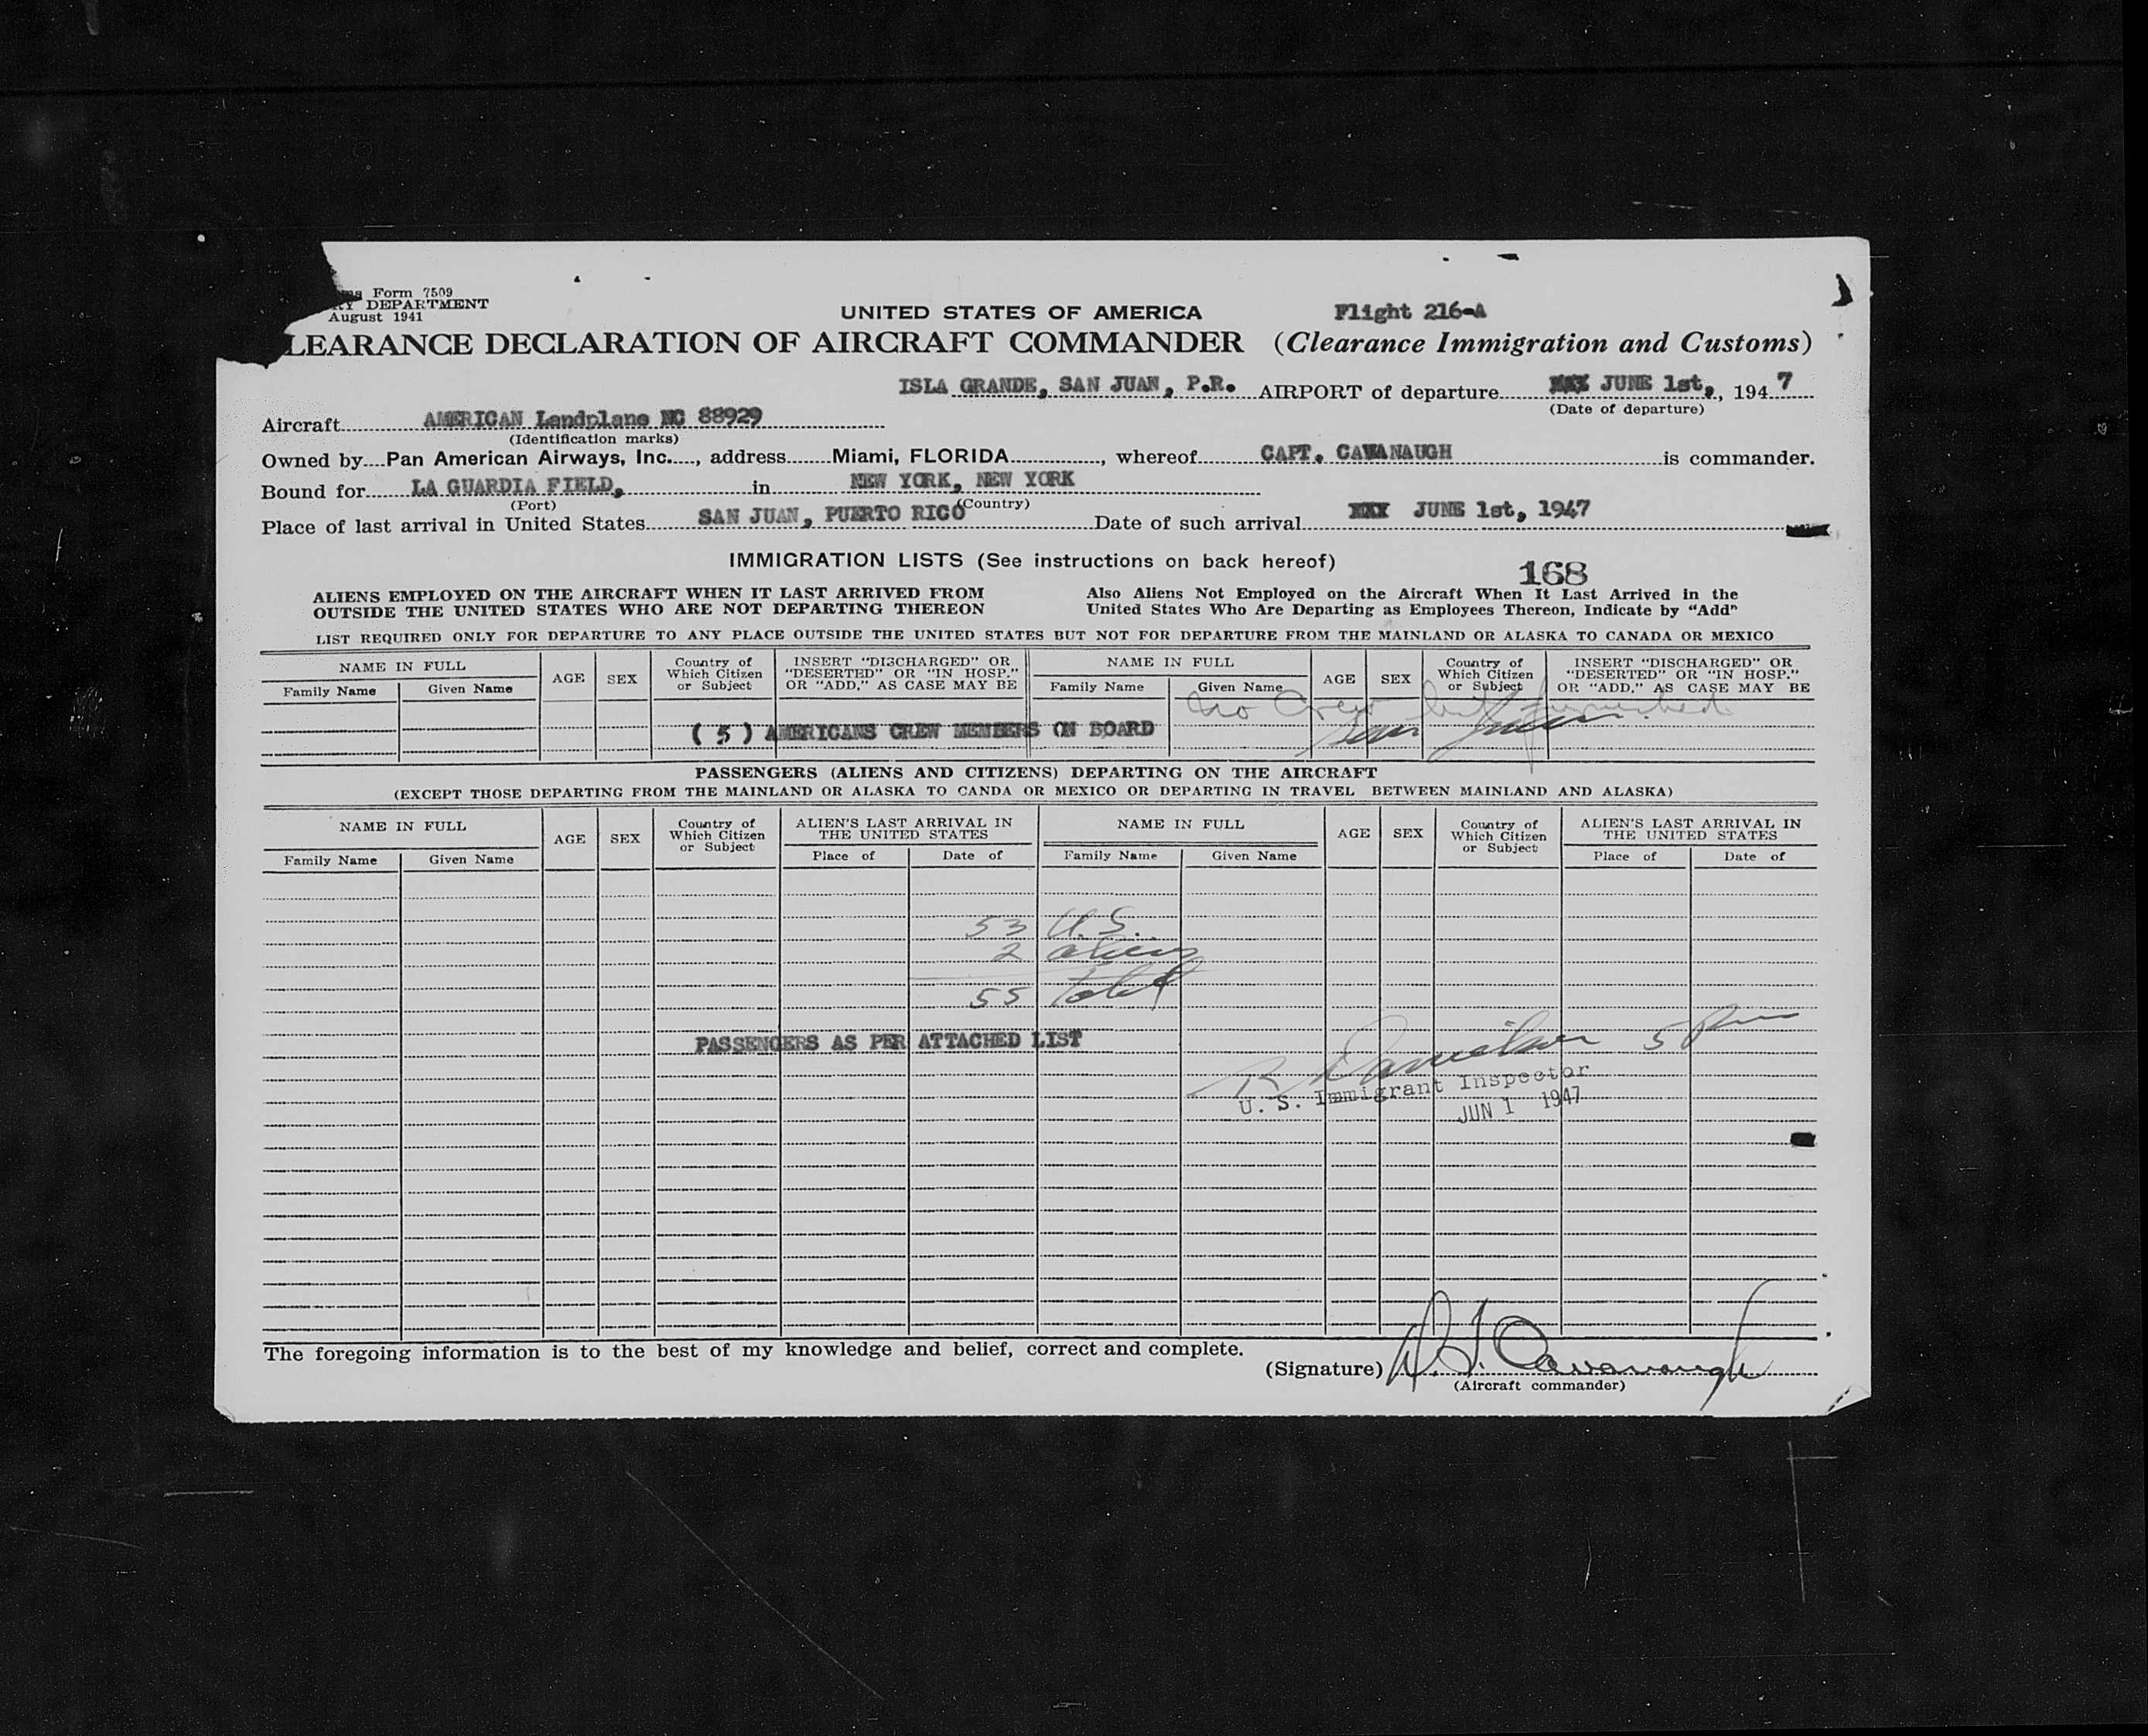 Form 7509
DEPARTMENT
August 1941
UNITED STATES OF AMERICA
Flight 216-A
LEARANCE DECLARATION OF AIRCRAFT COMMANDER (Clearance Immigration and Customs)
ISLA GRANDE, SAN JUAN, P.R. AIRPORT of departure JUNE 1st, , 194 7
(Date of departure)
Aircraft AMERICAN Landplane NC 88929
(Identification marks)
Owned by Pan American Airways, Inc. , address Miami, FLORIDA , whereof CAPT. CAVANAUGH is commander.
Bound for LA GUARDIA FIELD, in NEW YORK, NEW YORK
(Port) (Country)
Place of last arrival in United States SAN JUAN, PUERTO RICO Date of such arrival XXX JUNE 1st, 1947
IMMIGRATION LISTS (See instructions on back hereof)
168
ALIENS EMPLOYED ON THE AIRCRAFT WHEN IT LAST ARRIVED FROM
OUTSIDE THE UNITED STATES WHO ARE NOT DEPARTING THEREON
Also Aliens Not Employed on the Aircraft When It Last Arrived in the
United States Who Are Departing as Employees Thereon, Indicate by "Add"
LIST REQUIRED ONLY FOR DEPARTURE TO ANY PLACE OUTSIDE THE UNITED STATES BUT NOT FOR DEPARTURE FROM THE MAINLAND OR ALASKA TO CANADA OR MEXICO
NAME IN FULL
Family Name Given Name
AGE
SEX
Country of
Which Citizen
or Subject
INSERT "DISCHARGED" OR
"DESERTED" OR "IN HOSP."
OR "ADD," AS CASE MAY BE
NAME IN FULL
Family Name Given Name
AGE
SEX
Country of
Which Citizen
or Subject
INSERT "DISCHARGED" OR
"DESERTED" OR "IN HOSP."
OR "ADD," AS CASE MAY BE
No Crew list furnished
San Juan
( 5 ) AMERICANS CREW MEMBERS ON BOARD
PASSENGERS (ALIENS AND CITIZENS) DEPARTING ON THE AIRCRAFT
(EXCEPT THOSE DEPARTING FROM THE MAINLAND OR ALASKA TO CANDA OR MEXICO OR DEPARTING IN TRAVEL BETWEEN MAINLAND AND ALASKA)
NAME IN FULL
Family Name Given Name
AGE
SEX
Country of
Which Citizen
or Subject
ALIEN'S LAST ARRIVAL IN
THE UNITED STATES
Place of Date of
NAME IN FULL
Family Name Given Name
AGE
SEX
Country of
Which Citizen
or Subject
ALIEN'S LAST ARRIVAL IN
THE UNITED STATES
Place of Date of
53 U.S.
2 aliens
55 total
PASSENGERS AS PER ATTACHED LIST
R Danielson 5 Pm
U. S. Immigrant Inspector
JUN 1 1947
The foregoing information is to the best of my knowledge and belief, correct and complete.
(Signature) Cavanaugh
(Aircraft commander)